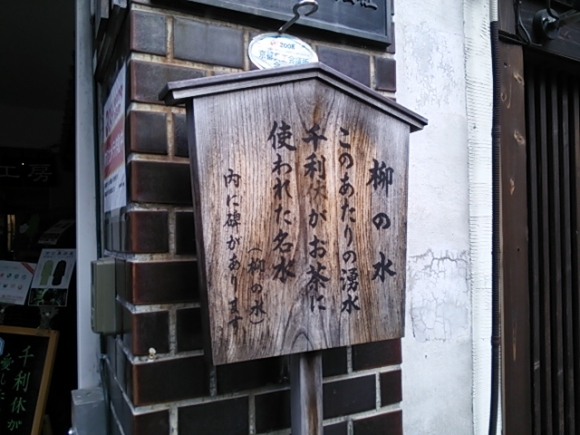 柳の水
このあたりの湧水
千利休がお茶に
使われた名水
(柳の水)
内に碑があります
2008
工房
千利休が
愛した